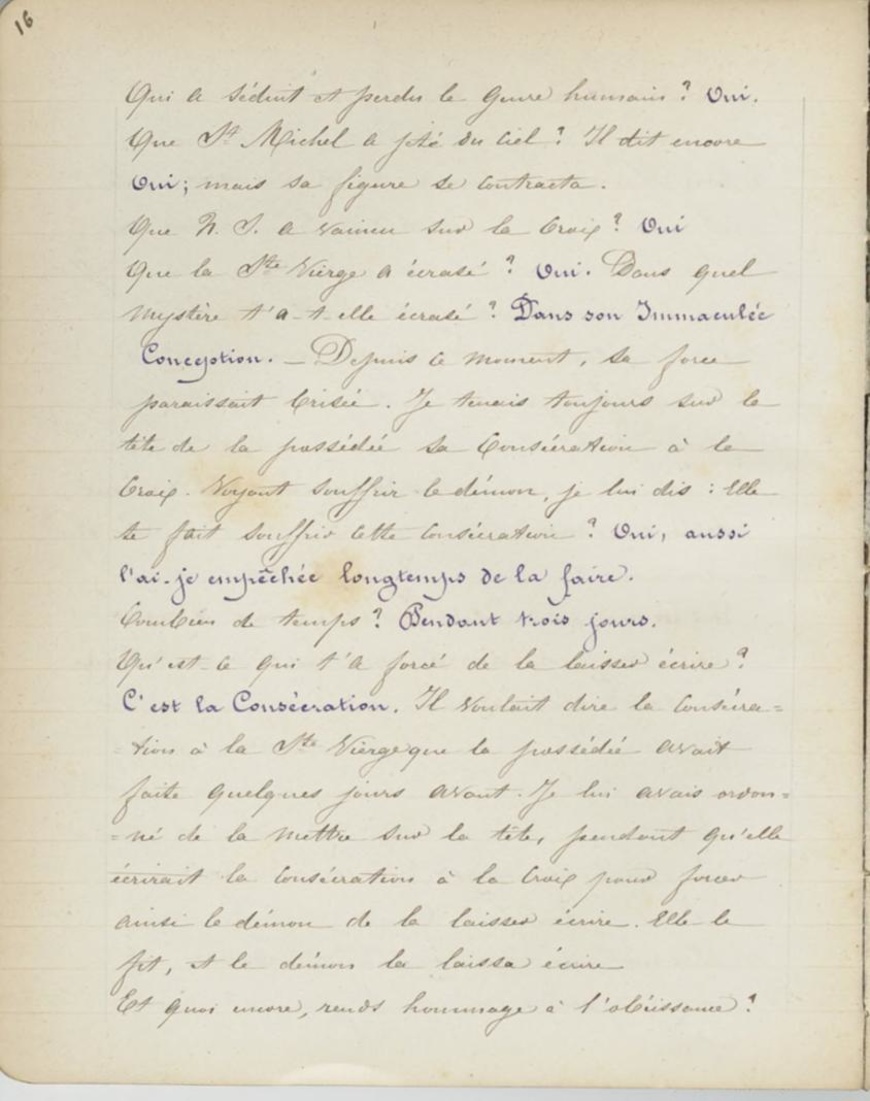 16
Qui a séduit et perdu le genre humain ? Oui.
Que St Michel a jeté du ciel ? Il dit encore
Oui ; mais sa figure se contracta.
Que N. S. a vaincu sur la Croix ? Oui
Que la Ste Vierge a écrasé ? Oui. Dans quel
mystère t'a-t-elle écrasé ? Dans son Immaculée
Conception. — Depuis ce moment, sa force
paraissait brisée. Je tenais toujours sur la
tête de la possédée sa Consécration à la
Croix. Voyant souffrir le démon, je lui dis : Elle
te fait souffrir cette consécration ? Oui, aussi
l'ai-je empêchée longtemps de la faire.
Combien de temps ? Pendant trois jours.
Qu'est-ce qui t'a forcé de la laisser écrire ?
C'est la Consécration. Il voulait dire la consécra=
=tion à la Ste Vierge que la possédée avait
faite quelques jours avant. Je lui avais ordon=
=né de la mettre sur la tête, pendant qu'elle
écrirait la consécration à la Croix pour forcer
ainsi le démon de la laisser écrire. Elle le
fit, et le démon la laissa écrire
Et quoi encore, rends hommage à l'obéissance ?